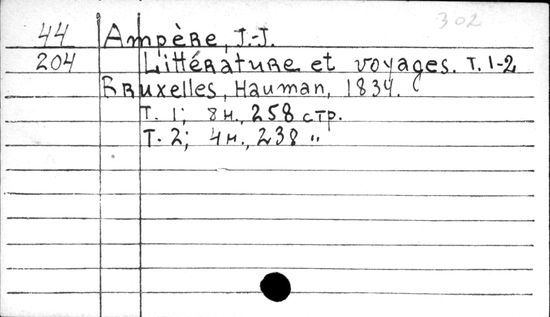 302
44 Ampère, J.-J.
204 Littérature et voyages. T. 1-2
Bruxelles, Hauman, 1834.
T. 1; 8 н., 258 стр.
T. 2; 4 н., 238 "